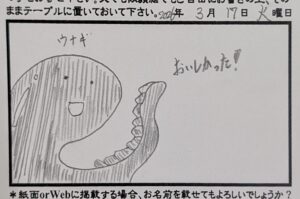 ままテーブルに置いておいて下さい。2026年 3月 17日 火曜日
ウナギ
おいしかった!
*紙面orWebに掲載する場合、お名前を載せてもよろしいでしょうか?